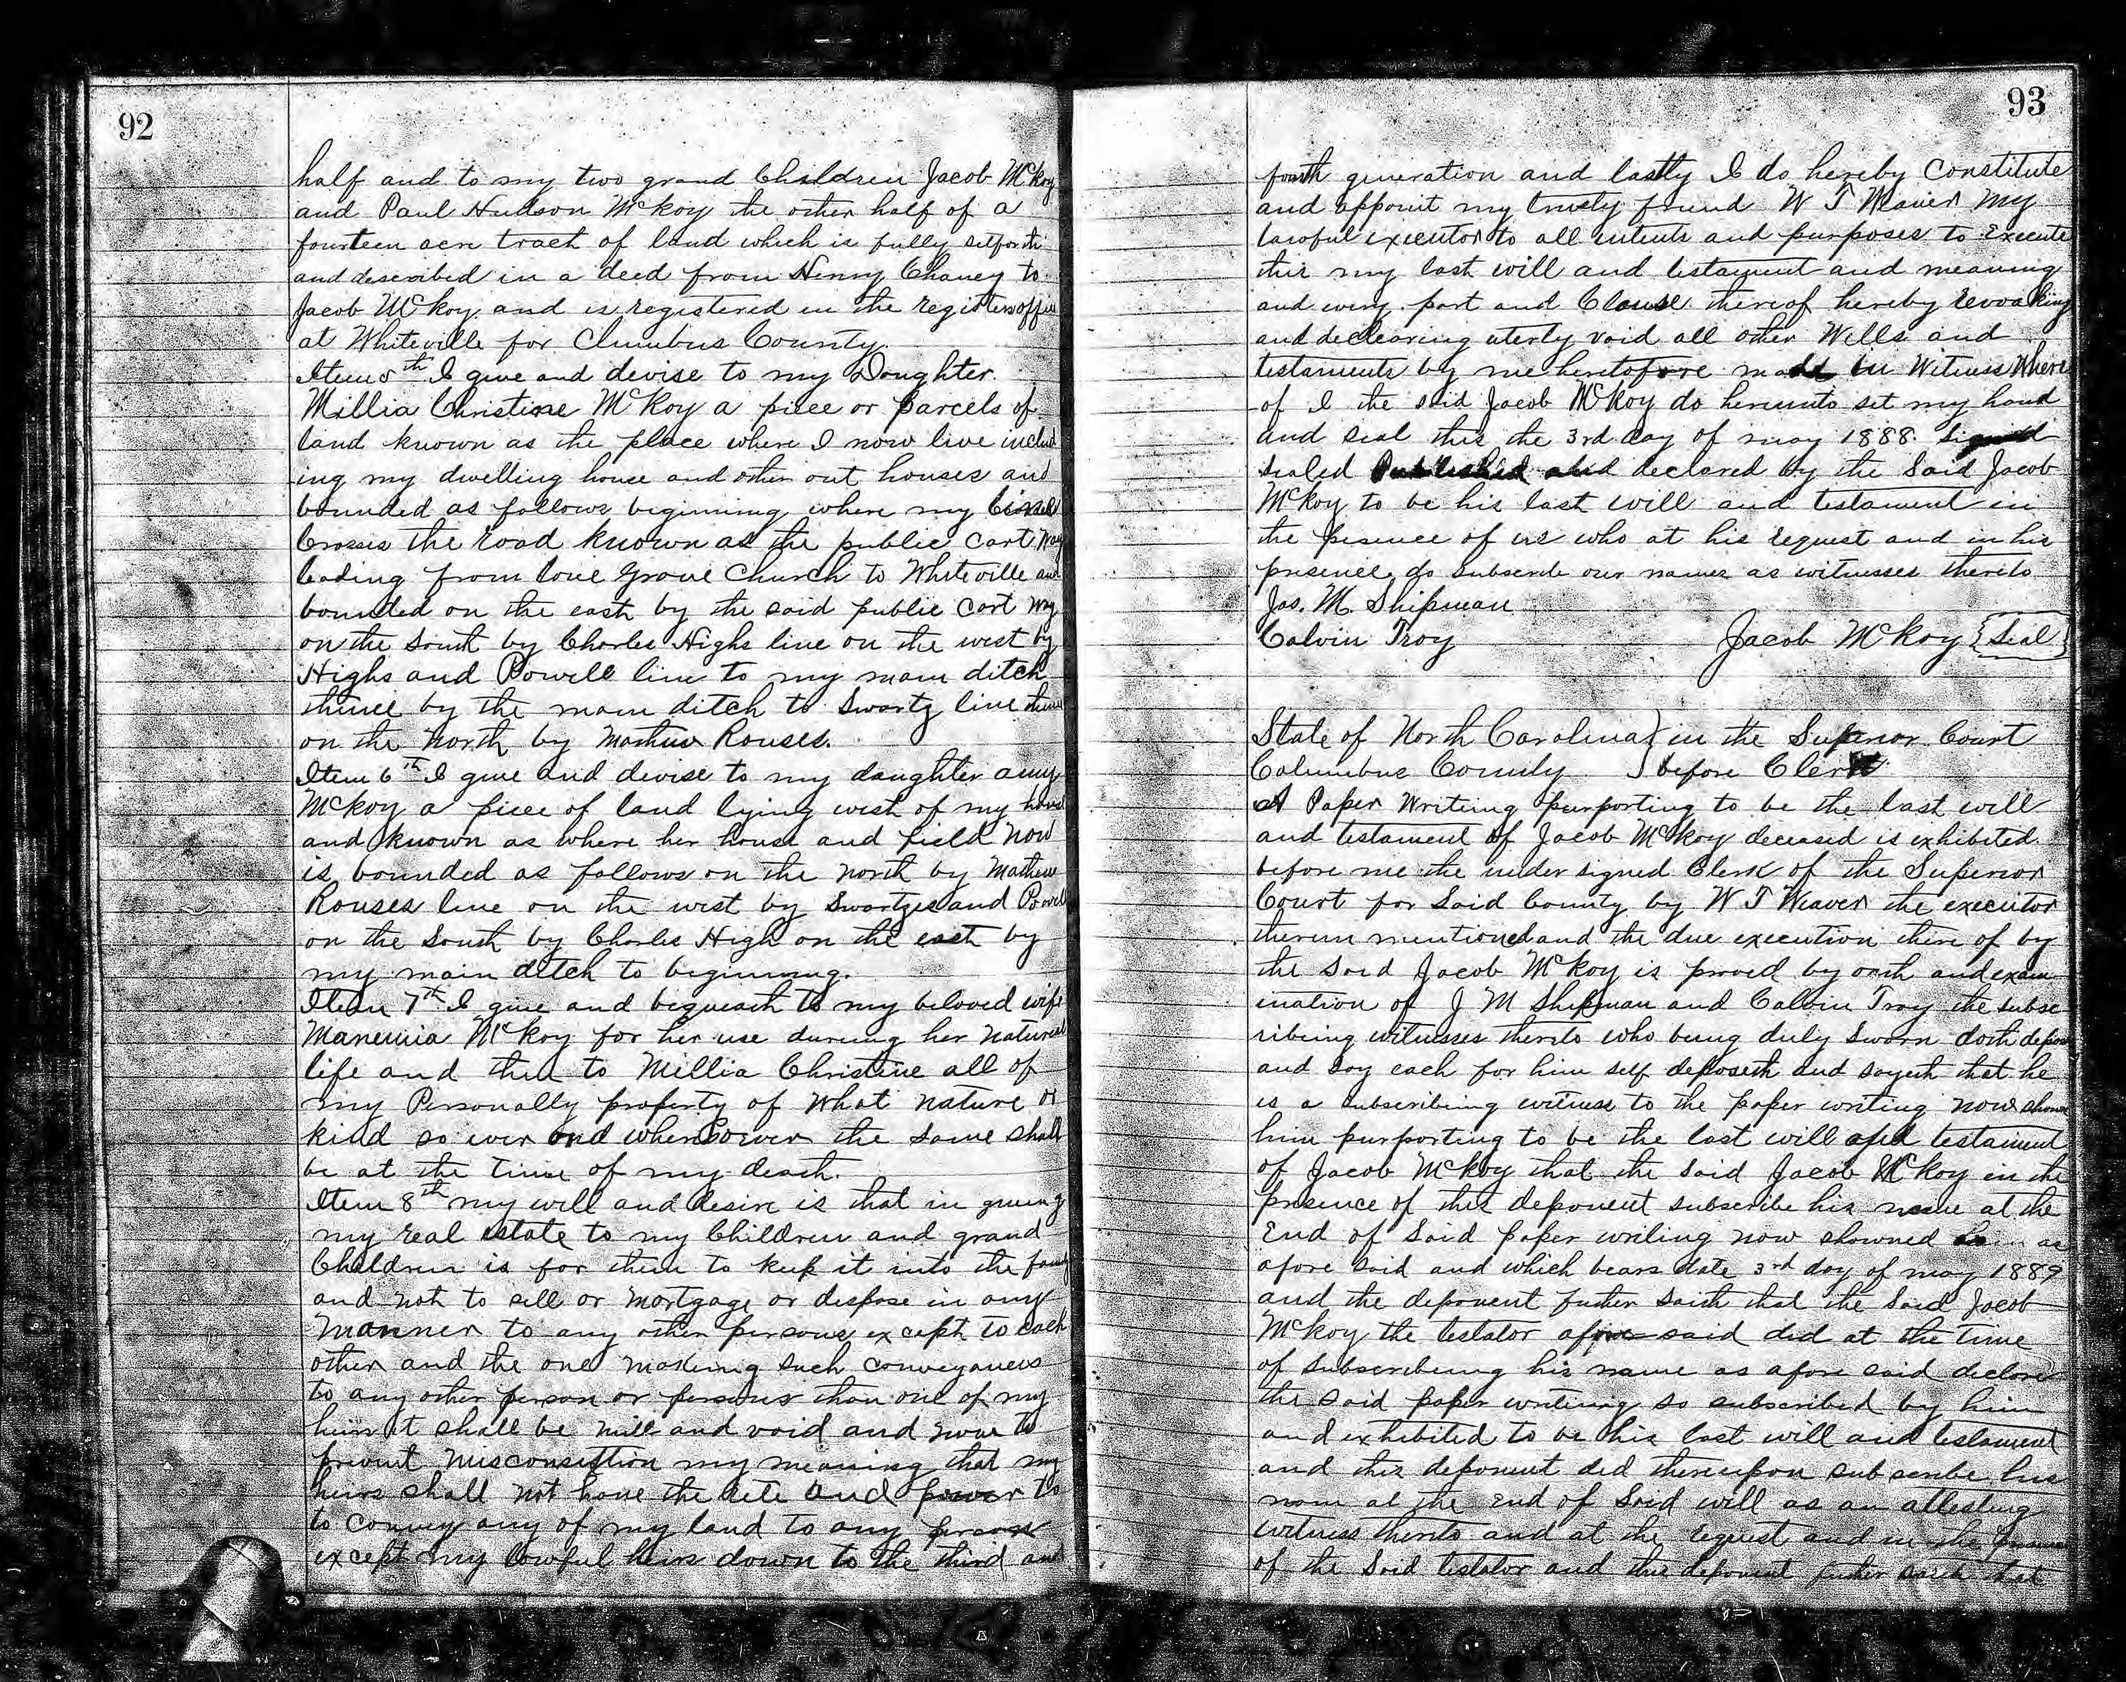 92
half and to my two grand Children Jacob McKoy
and Paul Hudson McKoy the other half of a
fourteen acre tract of land which is fully setforth
and described in a deed from Henry Chancy to
Jacob McKoy and is registered in the registers office
at Whiteville for Clumbus County.
Item 5th I give and devise to my Daughter
Millia Christine McKoy a piece or parcels of
land known as the place where I now live includ
ing my dwelling house and other out houses and
bounded as follows beginning where my
Crosses the road known as the public Cart Way
leading from Love Grove Church to Whiteville and
bounded on the east by the said public Cart Way
on the South by Charles Highs line on the west by
Highs and Powell line to my main ditch
thence by the main ditch to Swartz line thence
on the North by Mathew Rouses.
Item 6th I give and devise to my daughter amy
McKoy a piece of land lying west of my house
and known as where her house and field now
is bounded as follows on the north by Mathew
Rouses line on the west by Swartzes and Powell
on the South by Charles High on the east by
my main ditch to beginning.
Item 7th I give and bequeath to my beloved wife
McKoy for her use during her natureal
life and then to Millia Christine all of
my Personally property of What nature or
kind so ever and whensoever the same shall
be at the time of my death.
Item 8th my will and desire is that in giving
my real estate to my Children and grand
Children is for them to keep it into the family
and not to sell or mortgage or dispose in any
manner to any other persons except to each
other and the one making such conveyances
to any other person or persons than one of my
heirs it shall be null and void and now to
prevent my meaning that my
heirs shall not have the rite and power to
to convey any of my land to any person
except my lawful heirs down to the third and
93
fourth generation and lastly I do hereby Constitute
and appoint my trusty friend W T Weaver My
lawful executor to all intents and purposes to Execute
this my last will and testament and meaning
and every part and Clause thereof hereby revoaking
and declearing uterly void all other Wills and
testaments by me heretofore made In Witness Where
of I the said Jacob McKoy do hereunto set my hand
and seal this the 3rd day of may 1888. Signed
sealed Published and declared by the Said Jacob
McKoy to be his last will and testament in
the presence of us who at his request and in his
presence do subscribe our names as witnesses thereto
Jas. M. Shipman
Calvin Troy Jacob McKoy {Seal}
State of North Carolina } in the Superior Court
Columbus County } before Clerk
A Paper Writing purporting to be the last will
and testament of Jacob McKoy deceased is exhibited
before me the under signed Clerk of the Superior
Court for Said County by W T Weaver the executor
therein mentioned and the due execution there of by
the Said Jacob McKoy is proved by oath and exam
ination of J M Shipman and Calvin Troy the subsc
ribeing witnesses thereto who being duly Sworn doth depose
and say each for him self deposeth and sayeth that he
is a subscribing witness to the paper writing now shown
him purporting to be the last will and testament
of Jacob McKoy that the Said Jacob McKoy in the
presence of this deponent subscribe his name at the
End of Said paper writing now showned him as
afore said and which bears date 3rd day of may 1889
and the deponent futher saith that the Said Jacob
McKoy the testator afore said did at the time
of subscribeing his name as afore said declare
the said paper writing so subscribed by him
and exhibited to be his last will and testament
and this deponent did thereupon subscribe his
name at the End of Said will as an attesting
witness thereto and at the request and in the presence
of the Said testator and this deponent futher saith that